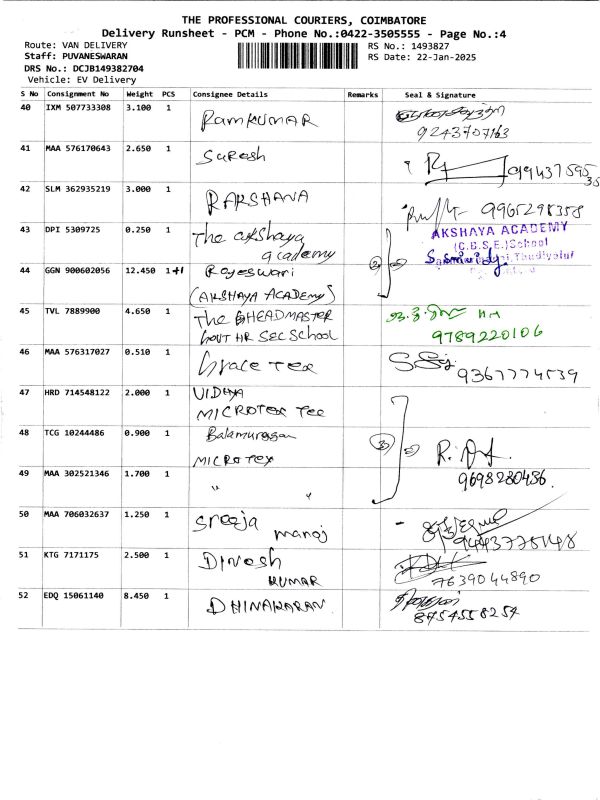 THE PROFESSIONAL COURIERS, COIMBATORE
Delivery Runsheet - PCM - Phone No.:0422-3505555 - Page No.:4
Route: VAN DELIVERY
RS No.: 1493827
Staff: PUVANESWARAN
RS Date: 22-Jan-2025
DRS No.: DCJB149382704
Vehicle: EV Delivery
S No Consignment No Weight PCS Consignee Details Remarks Seal & Signature
40 IXM 507733308 3.100 1 RAMKUMAR
9243707163
41 MAA 576170643 2.650 1 Suresh
42 SLM 362935219 3.000 1 RAKSHANA 9965298358
43 DPI 5309725 0.250 1 The akshaya academy
AKSHAYA ACADEMY
(C.B.S.E.)School
44 GGN 900602056 12.450 1+1 Rajeswari
(AKSHAYA ACADEMY) 2
45 TVL 7889900 4.650 1 The HEADMASTER
GOVT HR SEC School
HM
9789220106
46 MAA 576317027 0.510 1 Grace Tex
9367774539
47 HRD 714548122 2.000 1 VIDHYA
MICROTEX Tec
48 TCG 10244486 0.900 1 Balamurugan
MICROTEX 3
49 MAA 302521346 1.700 1 " "
9698280486
50 MAA 706032637 1.250 1 Sreeja manoj
51 KTG 7171175 2.500 1 Dinesh
KUMAR
7639044890
52 EDQ 15061140 8.450 1 DHINAKARAN
8754558254